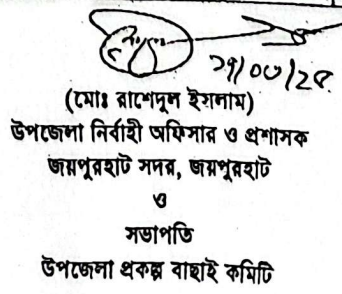 (মোঃ রাশেদুল ইসলাম)
উপজেলা নির্বাহী অফিসার ও প্রশাসক
জয়পুরহাট সদর, জয়পুরহাট
ও
সভাপতি
উপজেলা প্রকল্প বাছাই কমিটি